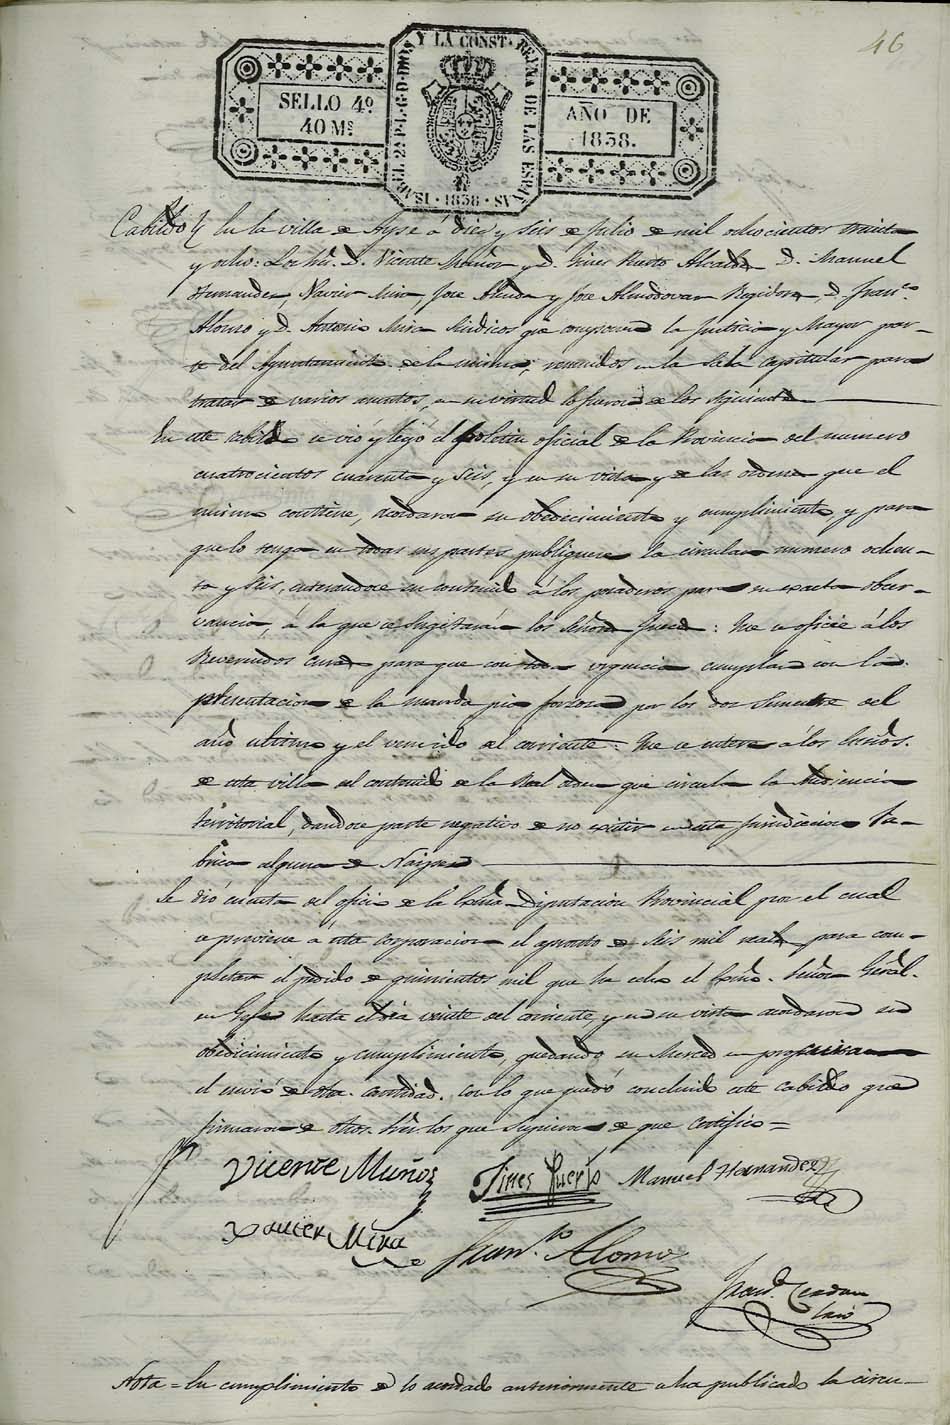 46
SELLO 4º
40 Ms
ISABEL 2ª P.L.G.D.DIOS Y LA CONST. REINA DE LAS ESPAÑAS
1838
AÑO DE
1838.
Cabildo En la villa de Ayse á diez y seis de Julio de mil ochocientos treinta
y ocho: Los Sres. D. Vicente Muñoz y D. Gines Puerto Alcaldes D. Manuel
Hernandez, Xavier Mira, Jose y Jose Almodovar Regidores, D. Franco.
Alonso y D. Antonio Mira Sindicos que componen la Justicia y Mayor par-
te del Ayuntamiento de la misma, reunidos en la Sala capitular para
tratar de varios asuntos, en su virtud lo fueron de los siguientes
En este cabildo se vió y leyó el Boletin oficial de la Provincia del numero
cuatrocientos cuarenta y seis, y en su vista y de las ordenes que el
mismo contiene, acordaron su obedecimiento y cumplimiento y para
que lo tenga en todas sus partes publiquese la circular numero ochen-
ta y seis, enterandose su contenido á los posaderos para su exacta obser-
vancia, á la que se sugetarán los Señores Jueces: Que se oficie á los
Reverendos curas para que con toda vigencia cumplan con la
presentacion de la manda pia forzosa por los dos Semestres del
año ultimo y el vencido del corriente: Que se entere á los Escnos.
de esta villa del contenido de la Real orden que circula la Audiencia
territorial, dandose parte negativo de no existir en esta Jurisdiccion fa-
brica alguna de Naipes
Se dió cuenta del oficio de la Exma. Diputacion Provincial por el cual
se previene á esta corporacion el apronto de Seis mil reales para com-
pletar el pedido de quinientos mil que ha echo el Exmo. Señor Genral.
en Gefe hasta el dia veinte del corriente, y en su vista acordaron su
obedicimiento y cumplimiento, quedando su Merced en
el envio de dha. cantidad. Con lo que quedó concluido este cabildo que
firmaron de dhos. Sres. los que Supieron de que certifico =
Vicente Muñoz
Jines Puerto
Manuel Hernandez
Xavier Mira
Franco. Alonso
Franco. Cerdan
Srio
Nota = En cumplimiento de lo acordado anteriormente se ha publicado la circu-